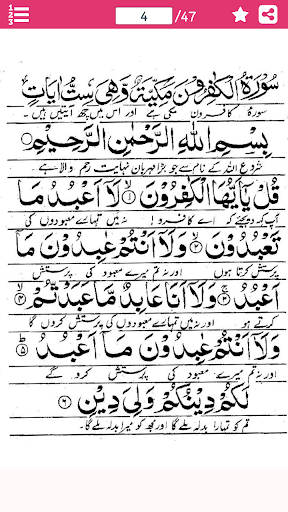 1
2
3
4 /47
سُوْرَةُ الْكٰفِرُوْنَ مَكِّيَّةٌ وَّهِيَ سِتُّ اٰيَاتٍ
سورۃ کافرون مکی ہے اور اس میں چھ آیتیں ہیں۔
بِسْمِ اللّٰهِ الرَّحْمٰنِ الرَّحِيْمِ
شروع اللہ کے نام سے جو بڑا مہربان نہایت رحم والا ہے
قُلْ يٰۤاَيُّهَا الْكٰفِرُوْنَ ۙ‏﴿۱﴾ لَاۤ اَعْبُدُ مَا
آپ کہہ دیجئے کہ اے کافرو! نہ میں تمہارے معبودوں کی
تَعْبُدُوْنَ ۙ﴿۲﴾ وَلَاۤ اَنْتُمْ عٰبِدُوْنَ مَاۤ
پرستش کرتا ہوں اور نہ تم میرے معبود کی پرستش
اَعْبُدُ ۚ﴿۳﴾ وَلَاۤ اَنَا عَابِدٌ مَّا عَبَدْتُّمْ ۙ﴿۴﴾
کرتے ہو اور نہ میں تمہارے معبودوں کی پرستش کروں گا
وَلَاۤ اَنْتُمْ عٰبِدُوْنَ مَاۤ اَعْبُدُ ؕ﴿۵﴾
اور نہ تم میرے معبود کی پرستش کرو گے
لَكُمْ دِيْنُكُمْ وَلِيَ دِيْنِ ﴿۶﴾
تم کو تمہارا بدلہ ملے گا اور مجھ کو میرا بدلہ ملے گا۔